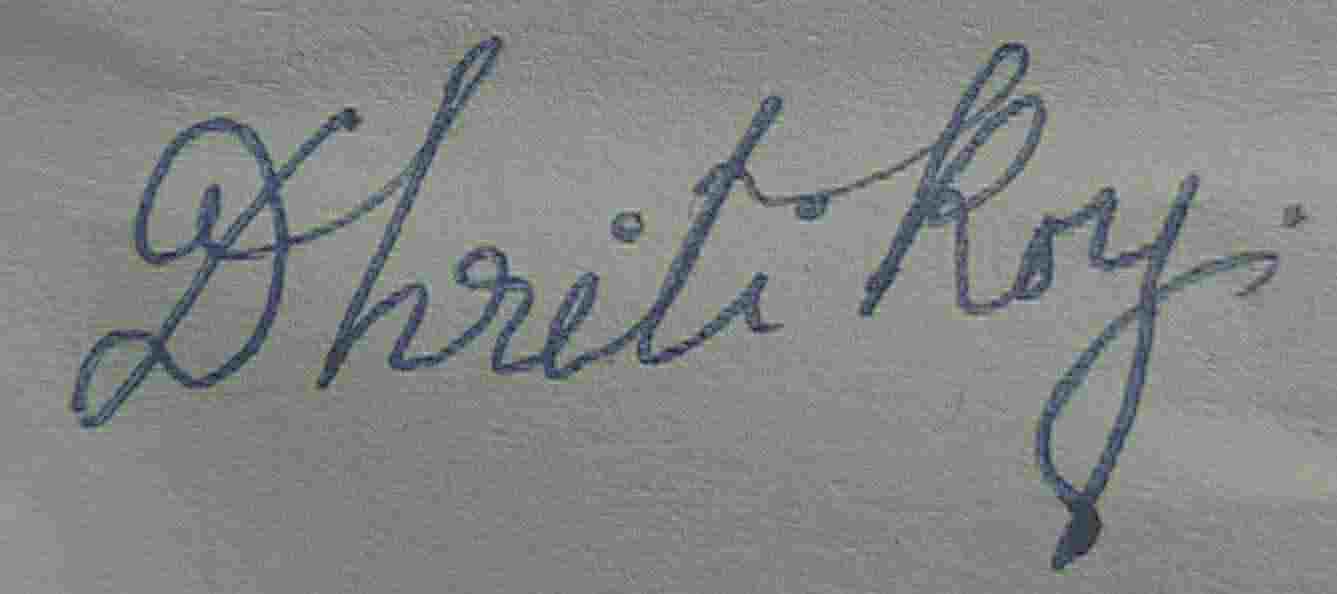 Dhriti Roy.